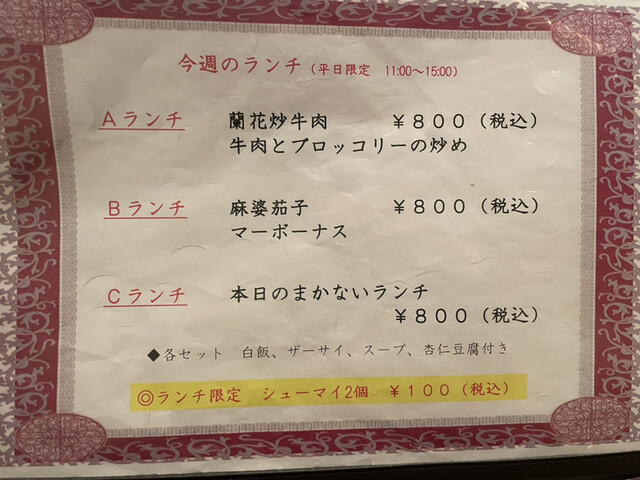 今週のランチ（平日限定　11:00～15:00）
Ａランチ　蘭花炒牛肉　￥８００（税込）
牛肉とブロッコリーの炒め
Ｂランチ　麻婆茄子　￥８００（税込）
マーボーナス
Ｃランチ　本日のまかないランチ
￥８００（税込）
◆各セット　白飯、ザーサイ、スープ、杏仁豆腐付き
◎ランチ限定　シューマイ2個　￥１００（税込）